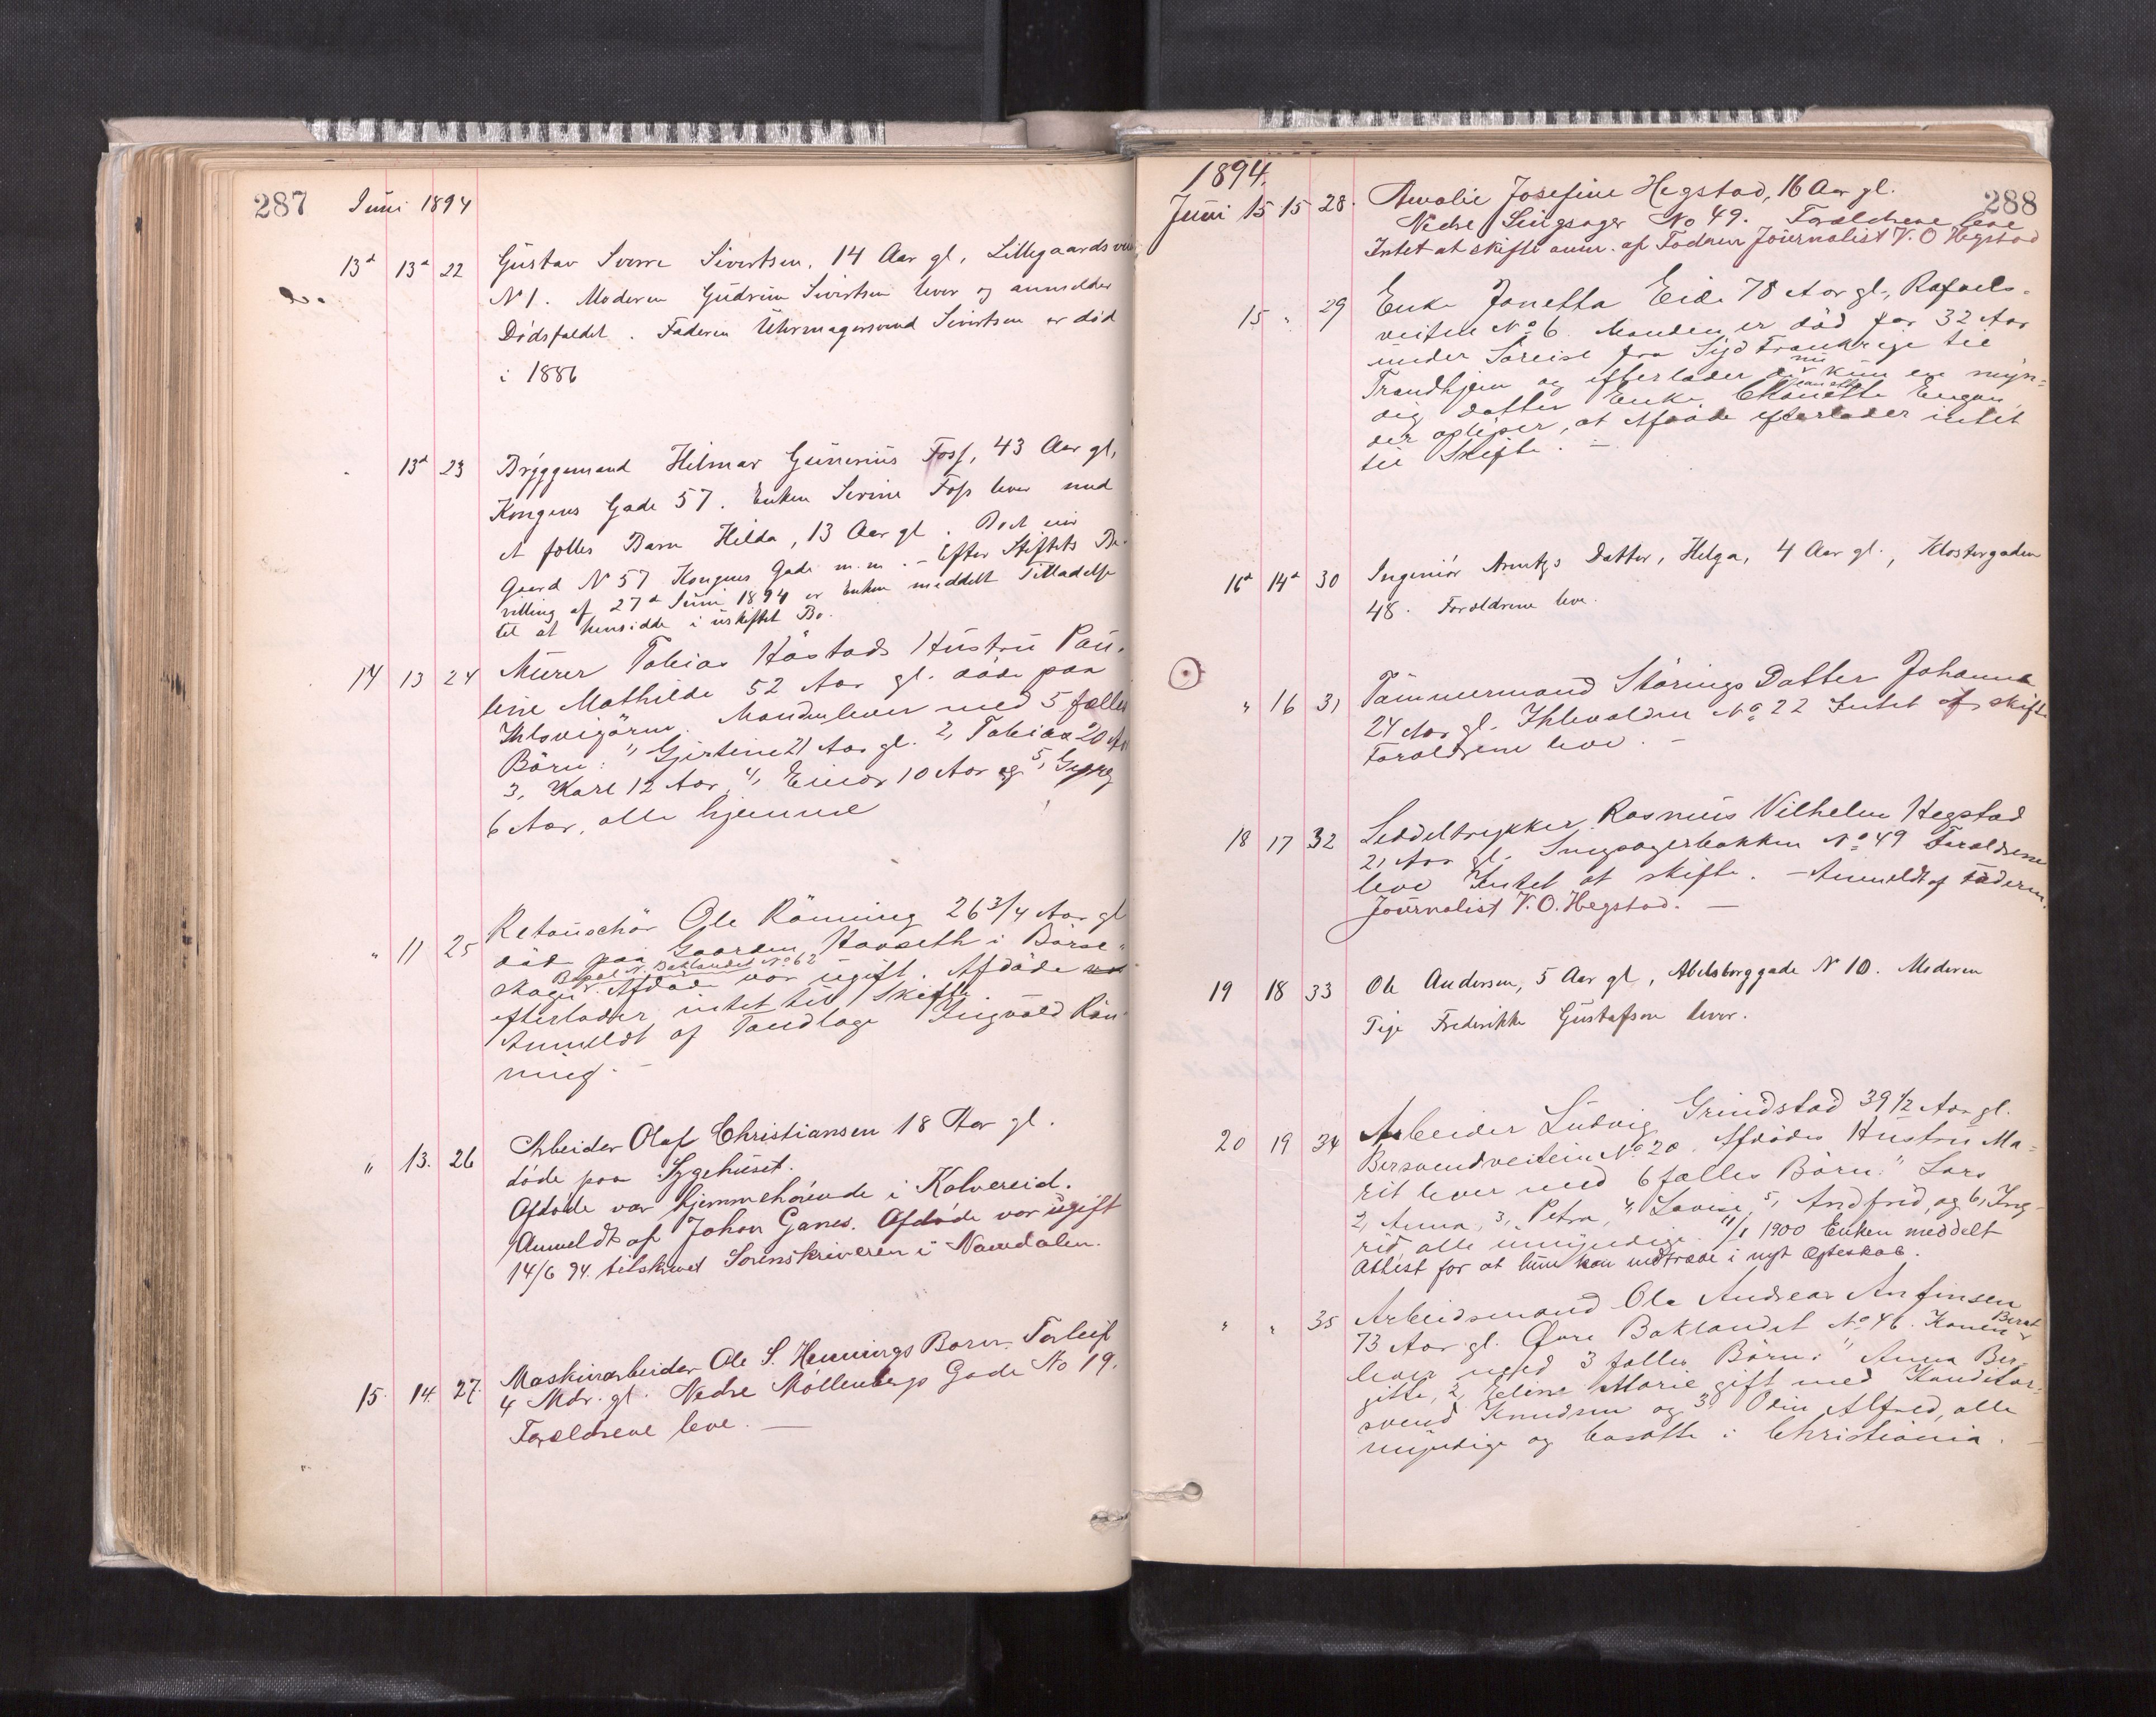 287 Juni 1894
13d 13d 22 Gustav Sverre Sivertsen, 14 Aar gl, Lillegaardsvei
N 1. Moderen Gudrun Sivertsen lever og anmelder
Dödsfaldet. Faderen Uhrmagersvend Sivertsen er död
i 1886
13d 23 Bryggemand Hilmar Gunerius Foss, 43 Aar gl,
Kongens Gade 57. Enken Serine Foss lever med
et fælles Barn Hilda, 13 Aar gl. Boet eier
Gaard N 57 Kongens Gade m.m. - Efter Stiftets Be-
villing af 27d Juni 1894 er Enken meddelt Tilladelse
til at hensidde i uskiftet Bo.
14 13 24 Murer Tobias Håstads Hustru Pau-
line Mathilde 52 Aar gl. döde paa
Ihlsvigören. Manden lever med 5 fælles
Börn: 1, Gjertine 21 Aar gl. 2, Tobias 20 Aar
3, Karl 12 Aar, 4, Einar 10 Aar og 5, Georg
6 Aar, alle hjemme
" 11 25 Retouschör Ole Rönning 26 3/4 Aar gl
död paa Gaarden Havseth i Börse-
Bopæl N. Baklandet No 62
skogn. Afdöde var ugift. Afdöde
efterlader intet til Skifte.
Anmeldt af Tandlæge Ingvald Rön-
ning. -
" 13. 26 Arbeider Olaf Christiansen 18 Aar gl.
döde paa Sygehuset.
Afdöde var hjemmehörende i Kolvereid.
Anmeldt af Johan Ganes. Afdöde var ugift
14/6 94. tilskrevet Sorenskriveren i Namdalen.
15. 14. 27. Maskinarbeider Ole S. Hennings Barn Torleif
4 Mdr. gl. Nedre Möllenbergs Gade No 19.
Forældrene leve. -
1894. 288
Juni 15 15 28. Amalie Josefine Hegstad, 16 Aar gl.
Nedre Singsager No 49. Forældrene leve
Intet at skifte anm. af Faderen Journalist V. O Hegstad
15 " 29 Enke Janetta Eide 78 Aar gl., Rafaels-
veiten No 6. Manden er död for 32 Aar
under Söreise fra Syd Frankrige til
nu
Trondhjem og efterlader kun en myn-
dig Datter Enke
der oplyser, at Afdöde efterlader intet
til Skifte. -
16d 14d 30 Ingeniör Datter, Helga, 4 Aar gl., Klostergaden
48. Forældrene leve.
" 16 31 Tömmermand Störings Datter Johanna
24 Aar gl. Ihlevolden No 22 Intet at skifte
Forældrene leve. -
18 17 32 Seddeltrykker Rasmus Vilhelm Hegstad
21 Aar gl. Singsagerbakken No 49 Forældrene
leve Intet at skifte. - Anmeldt af Faderen.
Journalist V. O. Hegstad. -
19 18 33 Ole Andersen, 5 Aar gl, Abelsborggade N 10. Moderen
Pige Frederikke Gustafson lever.
20 19 34 Arbeider Ludvig Grindstad 39 1/2 Aar gl.
Bersvendveiten No 20. Afdödes Hustru Ma-
rit lever med 6 fælles Börn: 1, Lars
2, Anna, 3, Petra, 4, Lovise, 5, Andfrid, og 6, Ing-
rid alle umyndige. 11/1 1900 Enken meddelt
Attest for at hun kan indtræde i nyt Ægteskab.
" " 35 Arbeidsmand Ole Andreas Anfinsen
73 Aar gl. Övre Baklandet No 46. Konen Berit
lever med 3 fælles Börn: 1, Anna Bir-
gitte, 2, Eline Marie gift med Konditor-
svend Knudsen og 3, Odin Alfred, alle
myndige og bosatte i Christiania. -